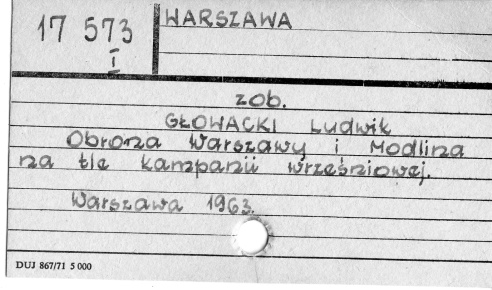 17 573
I
WARSZAWA
zob.
GŁOWACKI Ludwik
Obrona Warszawy i Modlina
na tle kampanii wrześniowej.
Warszawa 1963.
DUJ 867/71 5 000